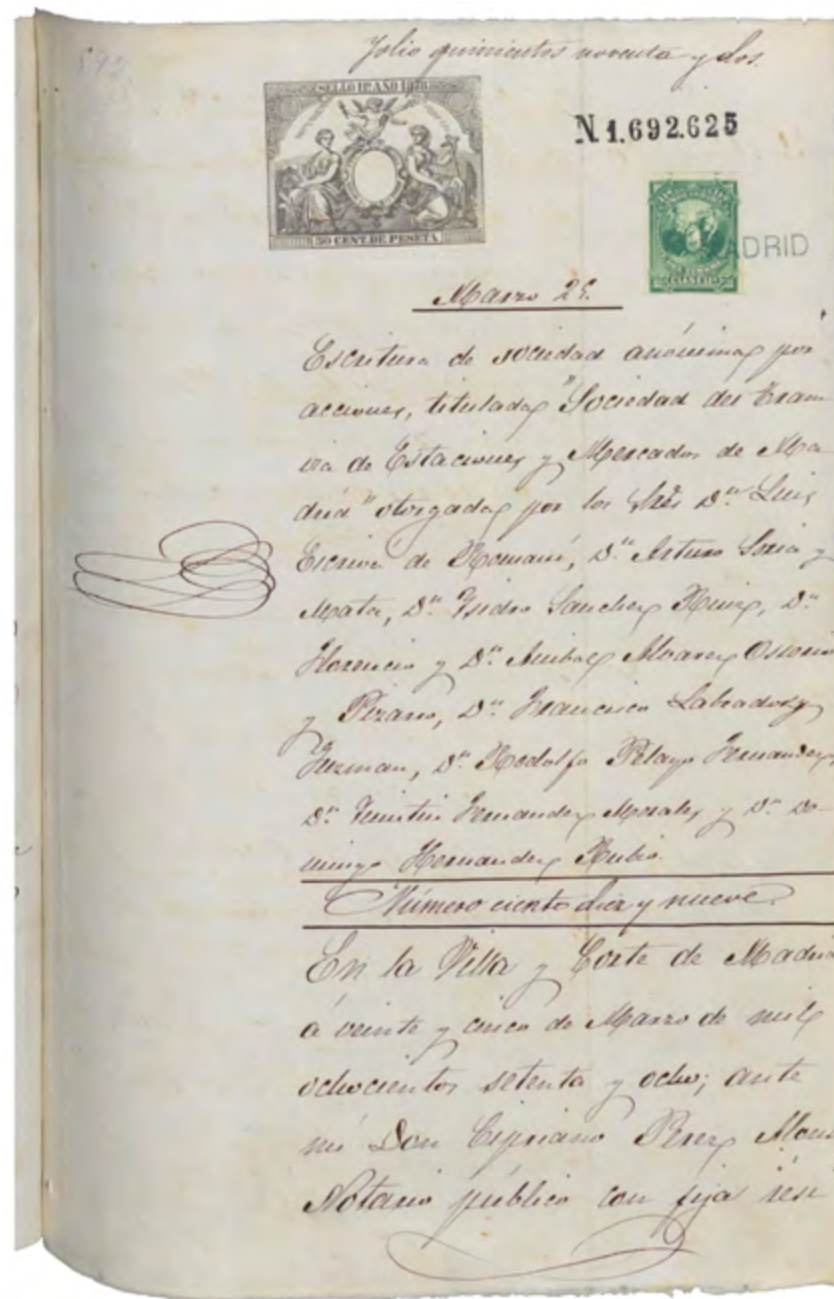 592
Folio quinientos noventa y dos.
SELLO 11º AÑO 1878
50 CENT. DE PESETA
N. 1.692.625
MADRID
Marzo 25.
Escritura de sociedad anónima por
acciones, titulada "Sociedad del Tram
via de Estaciones y Mercados de Ma
drid" otorgada por los Sres Dn. Luis
Escriva de Romaní, Dn. Arturo Soria y
Mata, Dn. Isidro Sanchez Ruiz, Dn.
Florencio y Dn. Anibal Alvarez Ossorio
y Pizano, Dn. Francisco Labrador y
Guzman, Dn. Rodolfo Pelayo Fernandez,
Dn. Quintin Fernandez Morales y Dn. Do-
mingo Hernandez Rubio.
Número ciento diez y nueve.
En la Villa y Corte de Madrid
á veinte y cinco de Marzo de mil
ochocientos setenta y ocho; ante
mí Don Cipriano Perez Alon
Notario público con fija resi